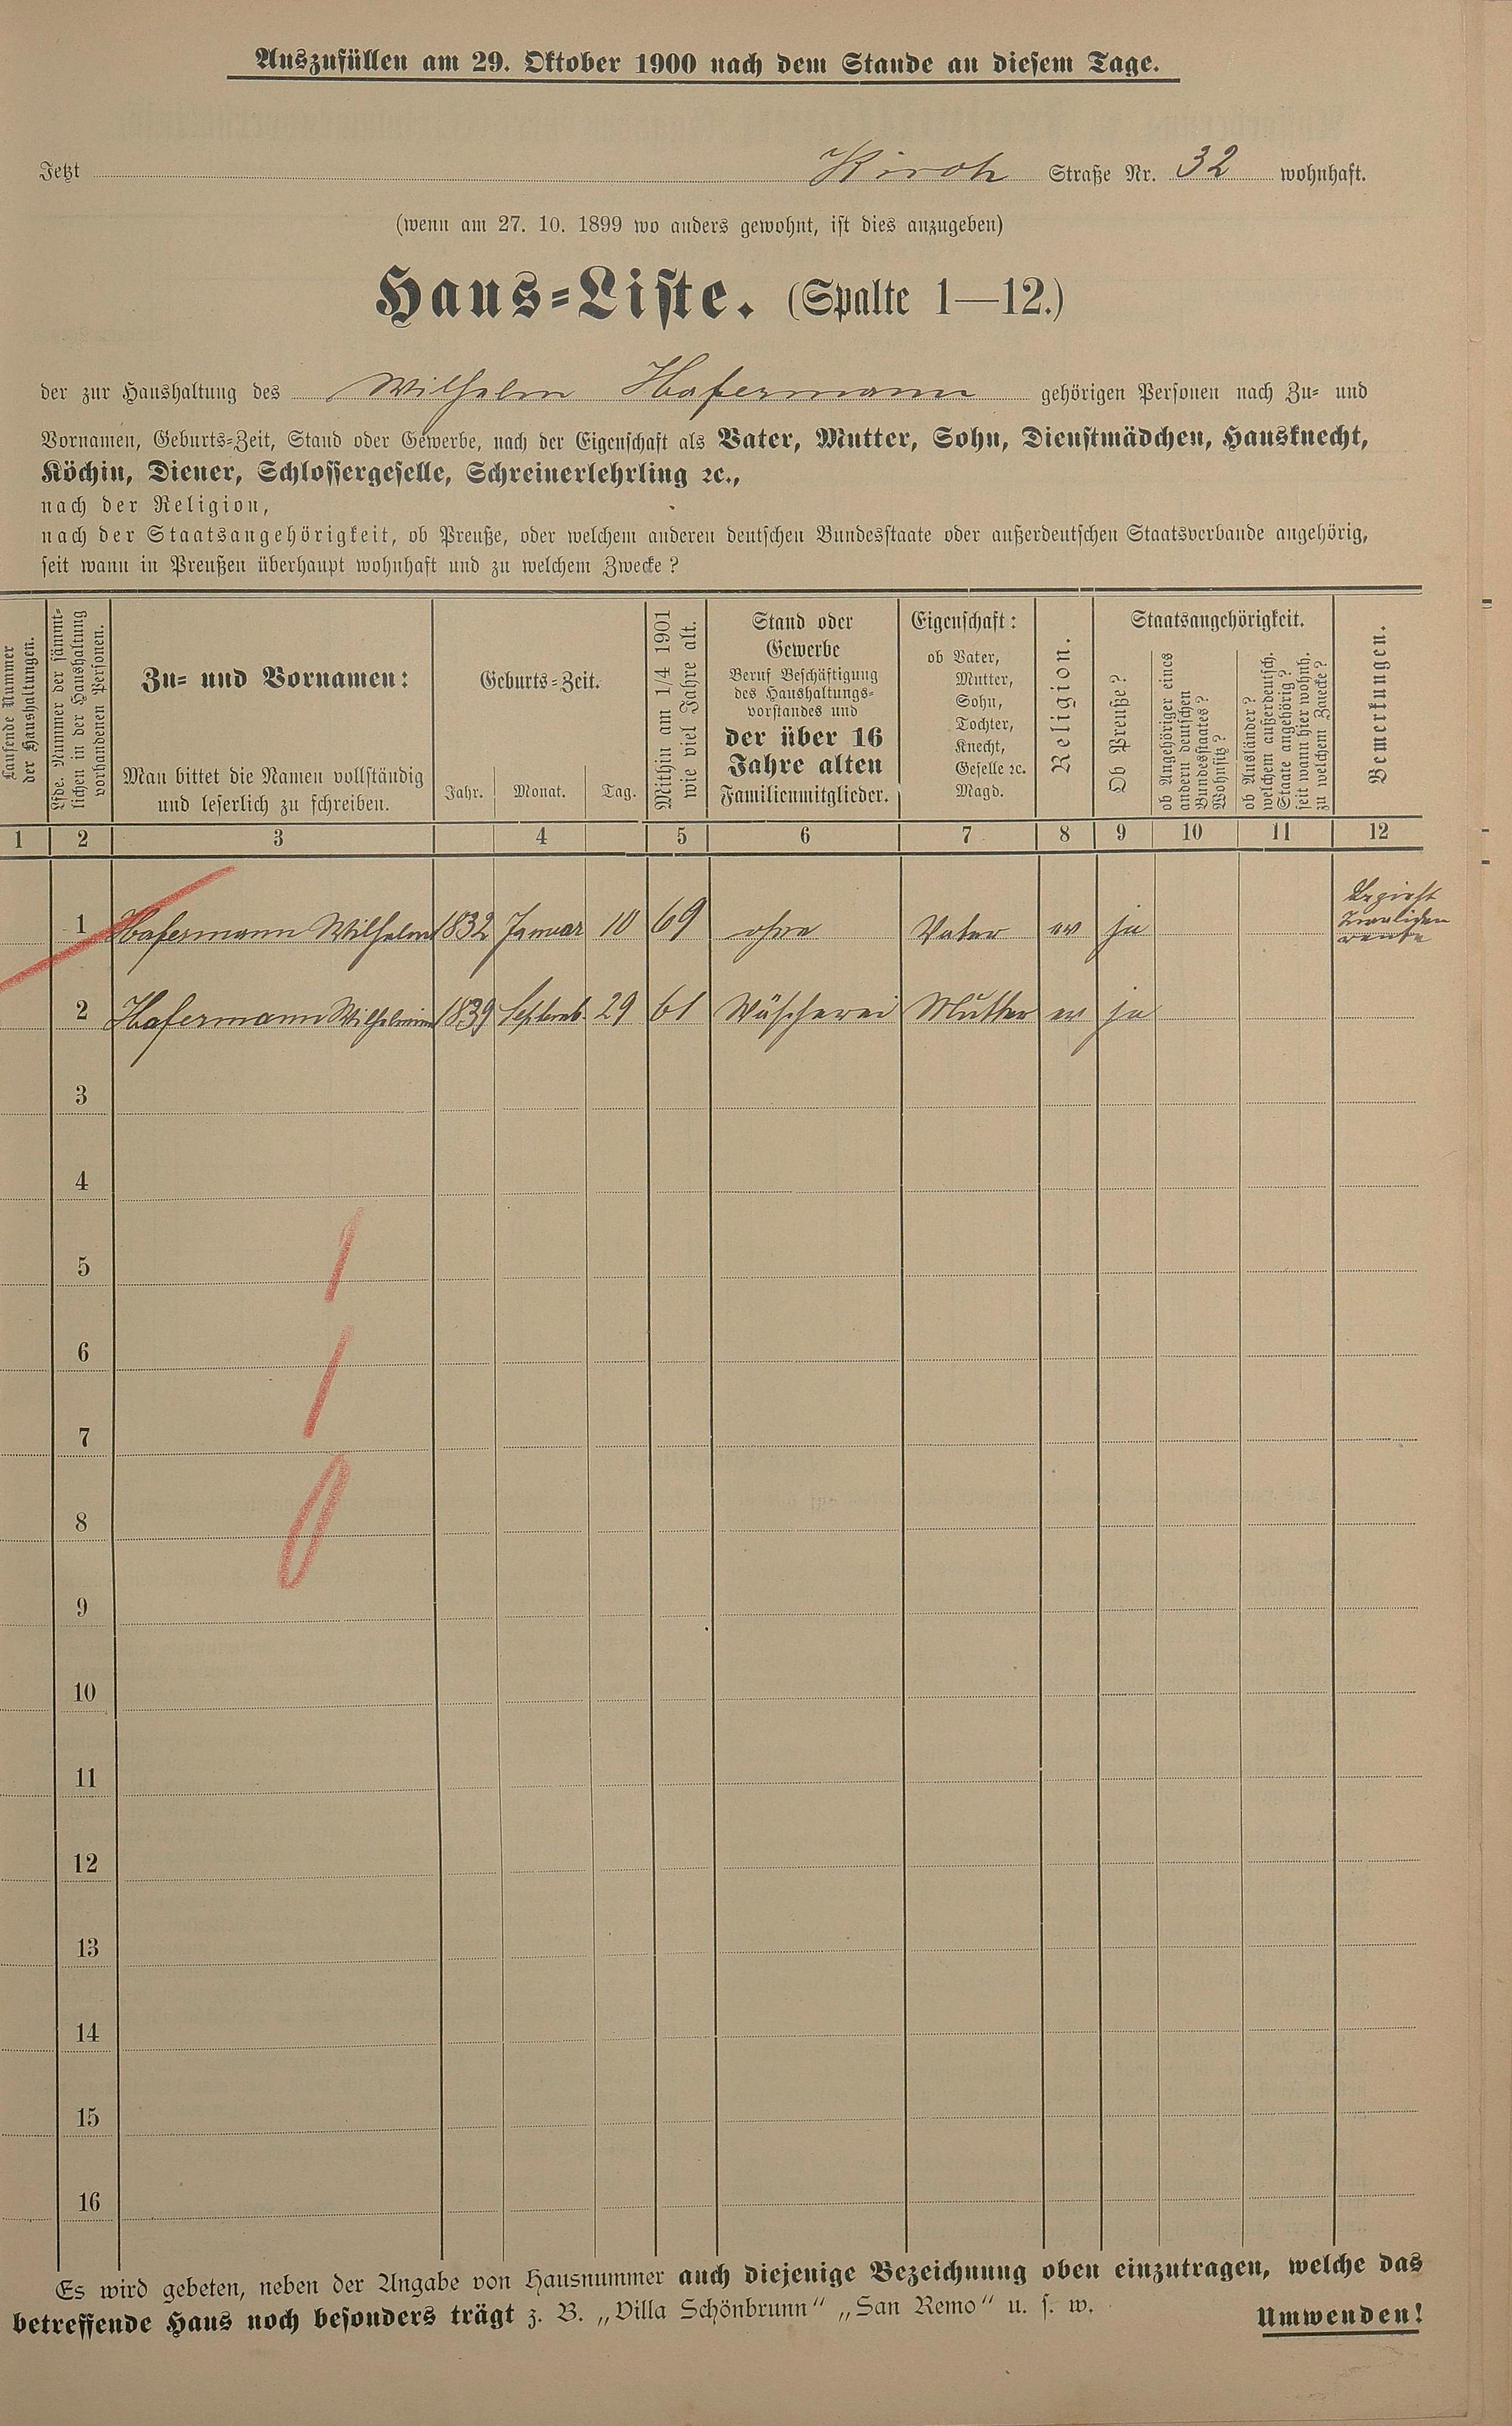 Auszufüllen am 29. Oktober 1900 nach dem Stande an diesem Tage.
Jetzt Kirch Straße Nr. 32 wohnhaft.
(wenn am 27. 10. 1899 wo anders gewohnt, ist dies anzugeben)
Haus-Liste. (Spalte 1—12.)
der zur Haushaltung des Wilhelm Hafermann gehörigen Personen nach Zu- und
Vornamen, Geburts-Zeit, Stand oder Gewerbe, nach der Eigenschaft als Vater, Mutter, Sohn, Dienstmädchen, Hausknecht,
Köchin, Diener, Schlossergeselle, Schreinerlehrling ꝛc.,
nach der Religion,
nach der Staatsangehörigkeit, ob Preuße, oder welchem anderen deutschen Bundesstaate oder außerdeutschen Staatsverbande angehörig,
seit wann in Preußen überhaupt wohnhaft und zu welchem Zwecke?
Laufende Nummer
der Haushaltungen.
Lfde. Nummer der sämmt-
lichen in der Haushaltung
vorhandenen Personen.
Zu- und Vornamen:
Man bittet die Namen vollständig
und leserlich zu schreiben.
Geburts-Zeit.
Jahr. Monat. Tag.
Mithin am 1/4 1901
wie viel Jahre alt.
Stand oder
Gewerbe
Beruf Beschäftigung
des Haushaltungs-
vorstandes und
der über 16
Jahre alten
Familienmitglieder.
Eigenschaft:
ob Vater,
Mutter,
Sohn,
Tochter,
Knecht,
Geselle ꝛc.
Magd.
Religion.
Staatsangehörigkeit.
Ob Preuße?
ob Angehöriger eines
andern deutschen
Bundesstaates?
Wohnsitz?
ob Ausländer?
welchem außerdeutsch.
Staate angehörig?
seit wann hier wohnh.
zu welchem Zwecke?
Bemerkungen.
1 2 3 4 5 6 7 8 9 10 11 12
1 Hafermann Wilhelm 1832 Januar 10 69 ohne Vater ev ja Bezieht
Invaliden
rente
2 Hafermann Wilhelmine 1839 Septemb. 29 61 Wäscherei Mutter ev ja
3
4
5
6
7
8
9
10
11
12
13
14
15
16
1
1
0
Es wird gebeten, neben der Angabe von Hausnummer auch diejenige Bezeichnung oben einzutragen, welche das
betreffende Haus noch besonders trägt z. B. „Villa Schönbrunn“ „San Remo“ u. s. w.
Umwenden!